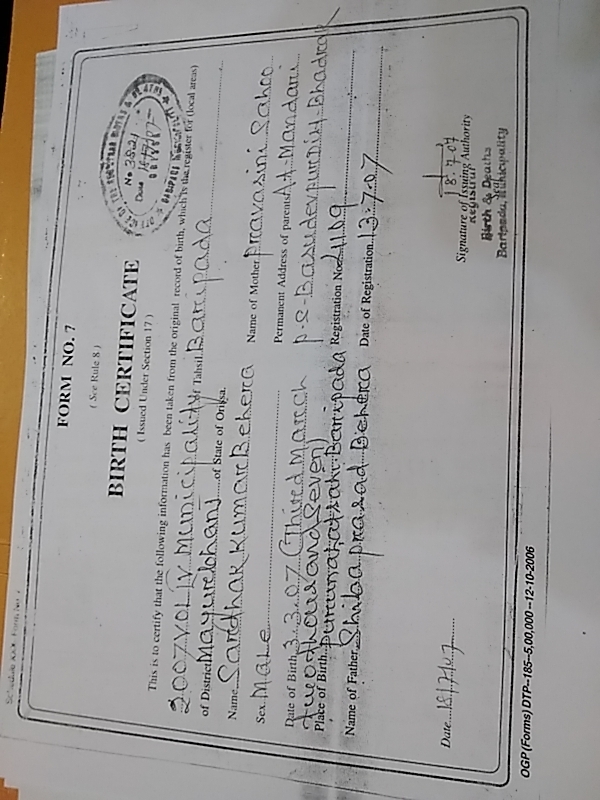 Schedule XXX Form No 7
FORM NO. 7
( See Rule 8 )
BIRTH CERTIFICATE
( Issued Under Section 17 )
No 3821
Date 18/7/07
This is to certify that the following information has been taken from the original record of birth, which is the register for (local areas)
2007 VOL IV Municipality of Tahsil Baripada
of District Mayurbhanj of State of Orissa.
Name Sarthak Kumar Behera Name of Mother Pravasini Sahoo
Sex Male Permanent Address of parents At-Mandari
Date of Birth 3.3.07 (Third March P.S-Basudevpur Dist-Bhadrak
two thousand Seven)
Place of Birth Baripada Registration No. 4109
Name of Father Shiba prasad Behera Date of Registration 13.7.07
Date 18/7/07
18.7.07
Signature of Issuing Authority
Registrar
Birth & Deaths
Baripada, Municipality
OGP (Forms) DTP--185--5,00,000--12-10-2006